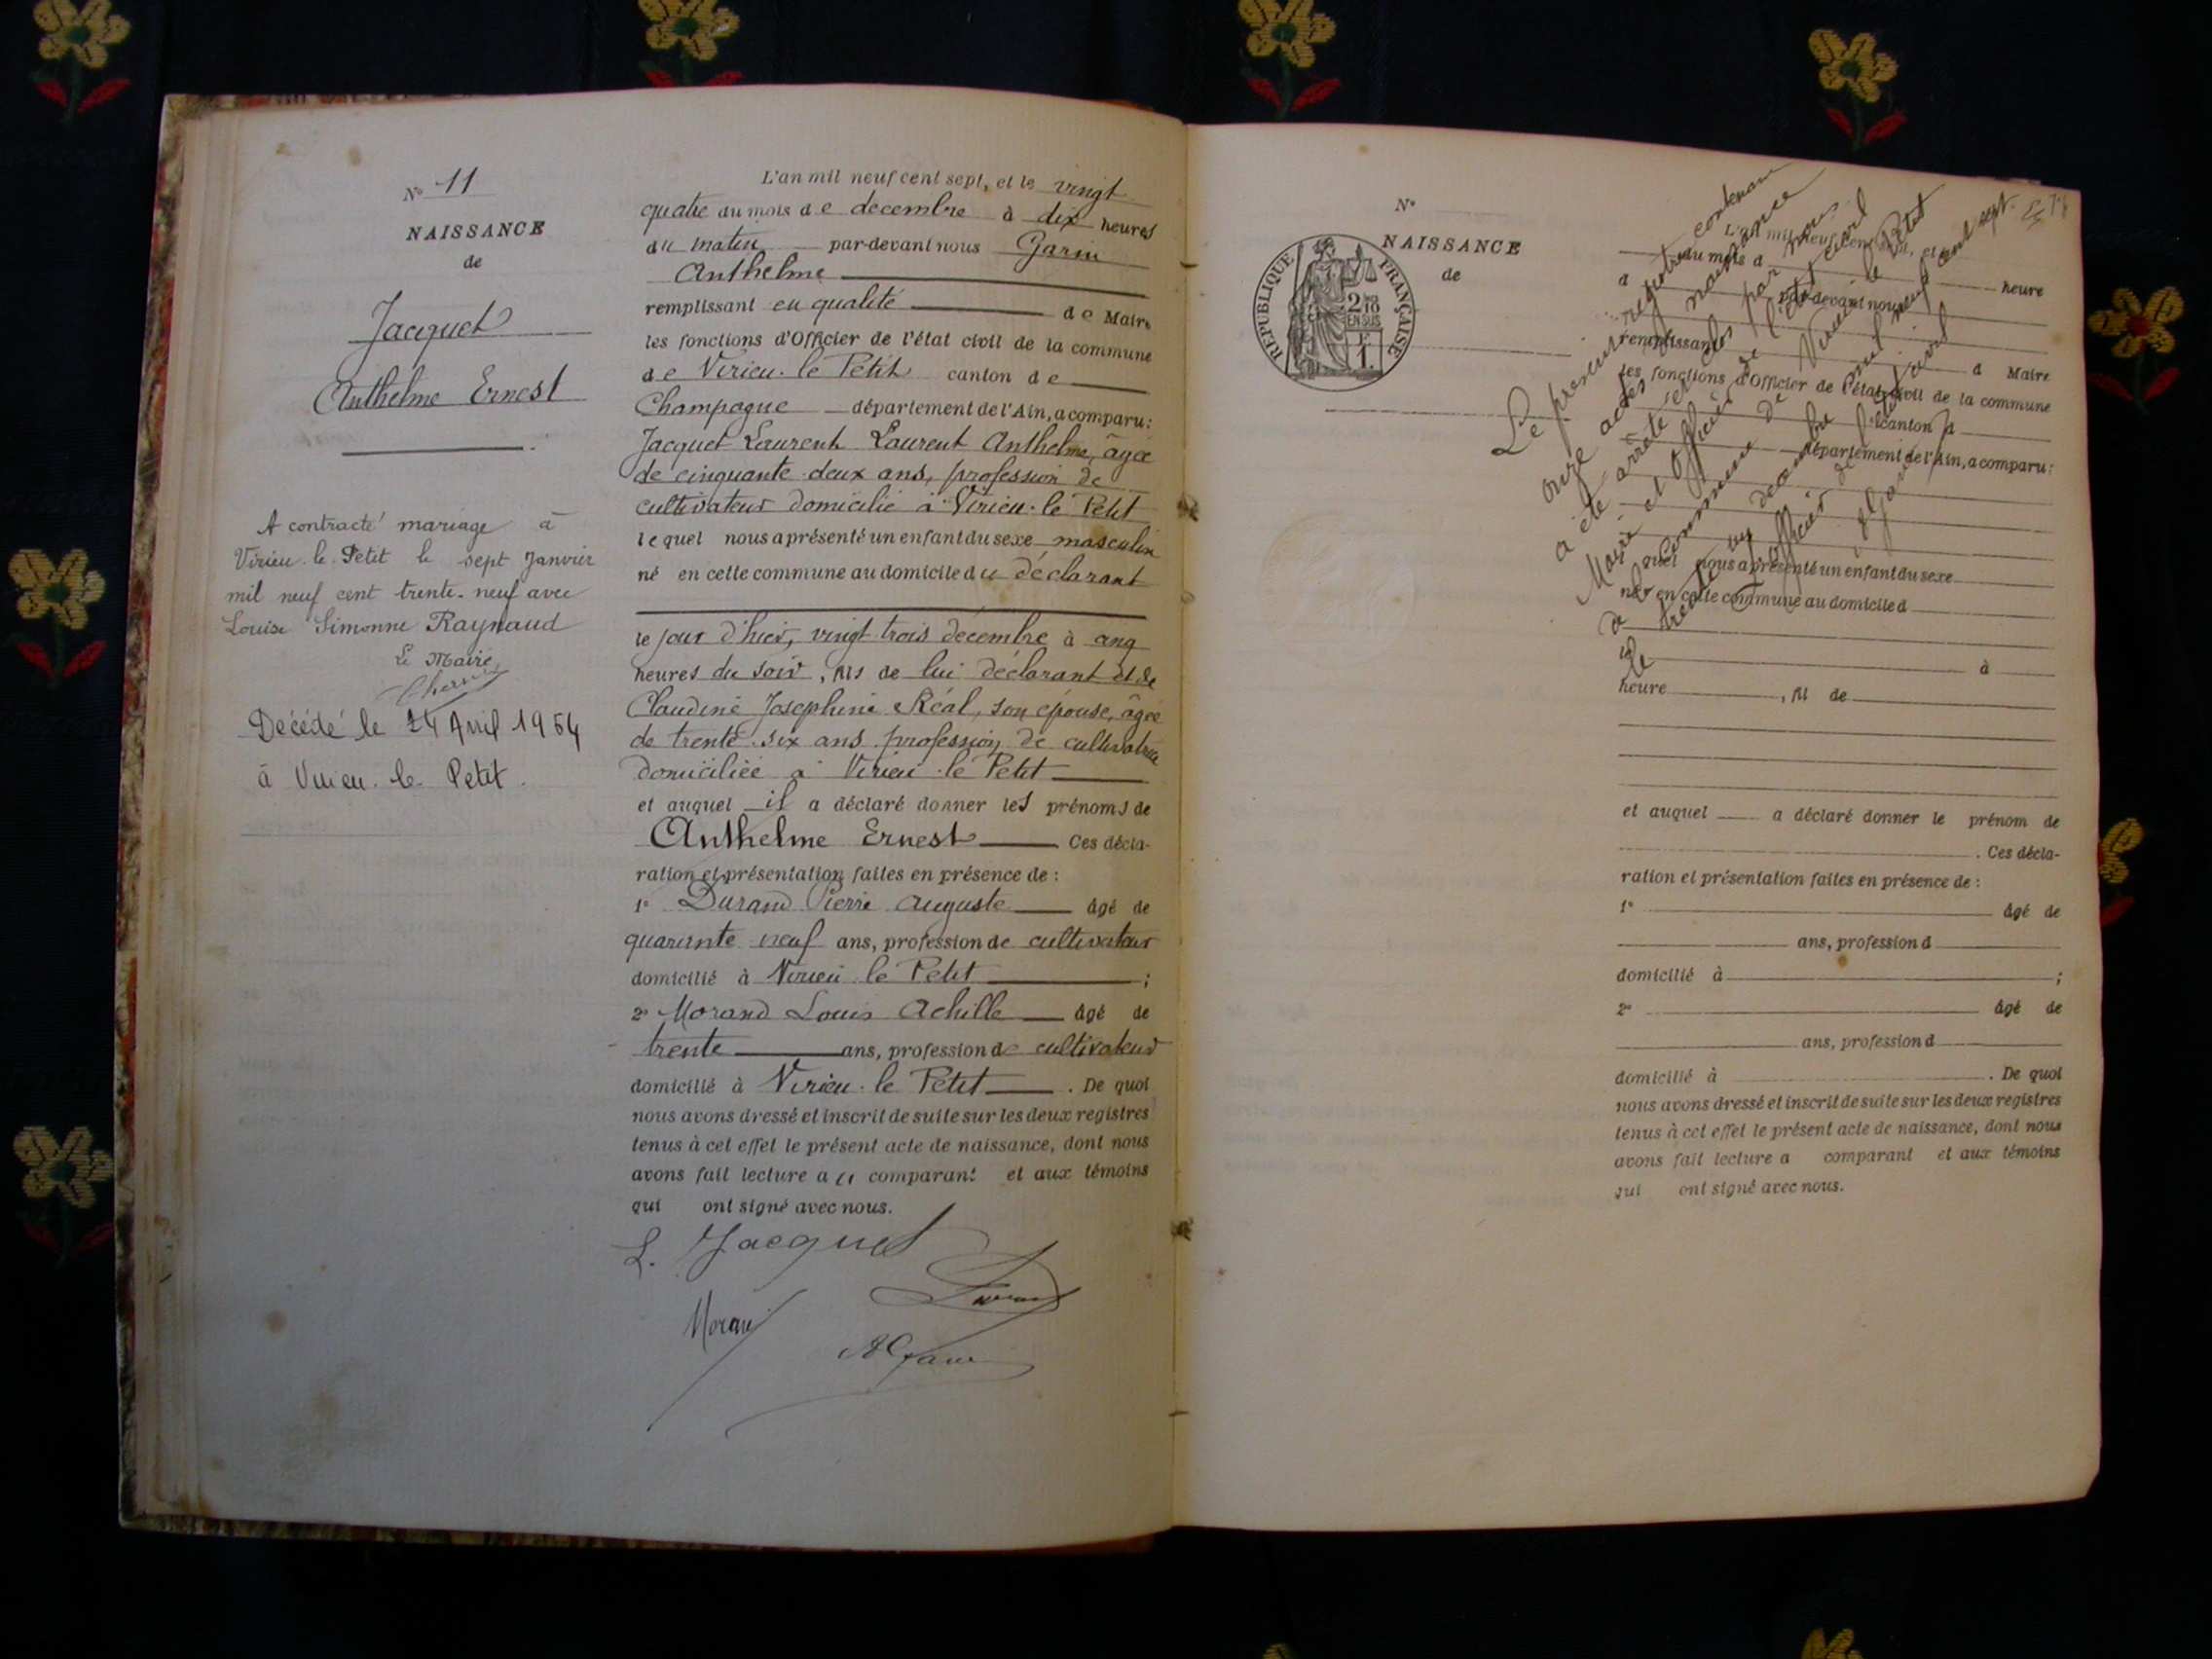 Nº 11
NAISSANCE
de
Jacquet
Anthelme Ernest
A contracté mariage à
Virieu-le-Petit le sept Janvier
mil neuf cent trente-neuf avec
Louise Simonne Raynaud
Le Maire,
Décédé le 24 Avril 1964
à Virieu-le-Petit.
L'an mil neuf cent sept, et le vingt
quatre du mois de decembre à dix heures
du matin par-devant nous Garin
Anthelme
remplissant en qualité de Maire
les fonctions d'Officier de l'état civil de la commune
de Virieu-le Petit canton de
Champagne département de l'Ain, a comparu:
Jacquet Laurent Laurent Anthelme, âgé
de cinquante-deux ans, profession de
cultivateur domicilié à Virieu-le Petit
lequel nous a présenté un enfant du sexe masculin
né en cette commune au domicile du déclarant
le jour d'hier, vingt trois décembre à cinq
heures du soir, fils de lui déclarant et de
Claudine Joséphine Réal, son épouse, âgée
de trente-six ans profession de cultivatrice
domiciliée à Virieu-le Petit
et auquel il a déclaré donner les prénoms de
Anthelme Ernest Ces décla-
ration et présentation faites en présence de :
1º Durand Pierre Auguste âgé de
quarante neuf ans, profession de cultivateur
domicilié à Virieu-le Petit ;
2º Morand Louis Achille âgé de
trente ans, profession de cultivateur
domicilié à Virieu-le Petit . De quoi
nous avons dressé et inscrit de suite sur les deux registres
tenus à cet effet le présent acte de naissance, dont nous
avons fait lecture au comparant et aux témoins
qui ont signé avec nous.
L. Jacquet
Durand
Morand
Nº
NAISSANCE
de
RÉPUBLIQUE FRANÇAISE
2/10
EN SUS
1F
Le présent registre contenant
onze actes de naissance
a été arrêté et clos par nous
Maire et Officier de l'état civil
de la Commune de Virieu le Petit
le trente un décembre mil neuf cent sept.
L'officier de l'état civil
AGarin
L'an mil neuf cent sept, et le
du mois d
à heure
par-devant nous
remplissant d Maire
les fonctions d'Officier de l'état civil de la commune
d canton d
département de l'Ain, a comparu:
lequel nous a présenté un enfant du sexe
né en cette commune au domicile d
le à
heure , fil de
et auquel a déclaré donner le prénom de
. Ces décla-
ration et présentation faites en présence de :
1º âgé de
ans, profession d
domicilié à ;
2º âgé de
ans, profession d
domicilié à . De quoi
nous avons dressé et inscrit de suite sur les deux registres
tenus à cet effet le présent acte de naissance, dont nous
avons fait lecture a comparant et aux témoins
qui ont signé avec nous.